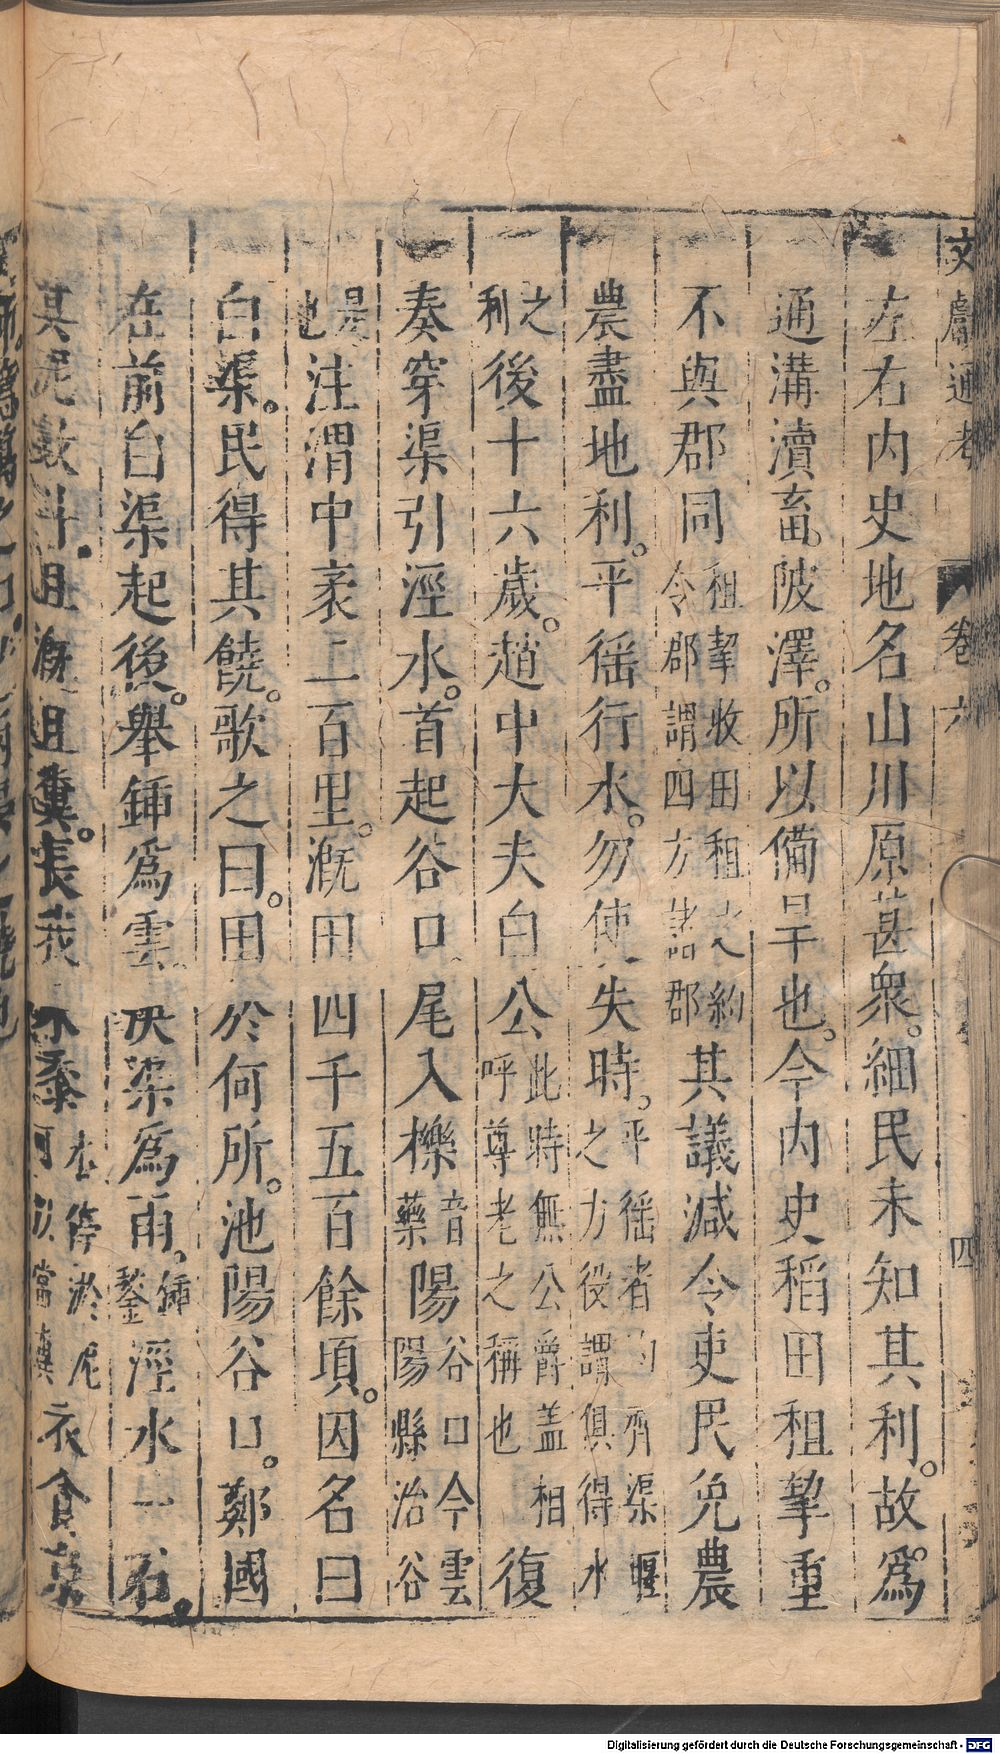 文獻通考 卷六 四
左右內史地名山川原甚衆。細民未知其利。故爲
通溝瀆畜。陂澤。所以備旱也。今內史稻田租挈重
不與郡同租挈收田租之約令郡謂四方諸郡其議減令吏民免農
農盡地利。平徭行水。勿使失時。平徭者均齊渠堰之方役謂俱得水
之利後十六歲。趙中大夫白公此時無公爵盖相呼尊老之稱也復
奏穿渠引涇水。首起谷口。尾入櫟音藥陽谷口今雲陽縣治谷
是也注渭中袤二百里。溉田四千五百餘頃。因名曰
白渠。民得其饒。歌之曰。田於何所。池陽谷口。鄭國
在前白渠起後。舉鍤爲雲決渠爲雨。鍤鍫涇水一石。
其泥數斗。且溉且糞。長我禾黍水停淤泥可以當糞衣食京
Digitalisierung gefördert durch die Deutsche Forschungsgemeinschaft - DFG